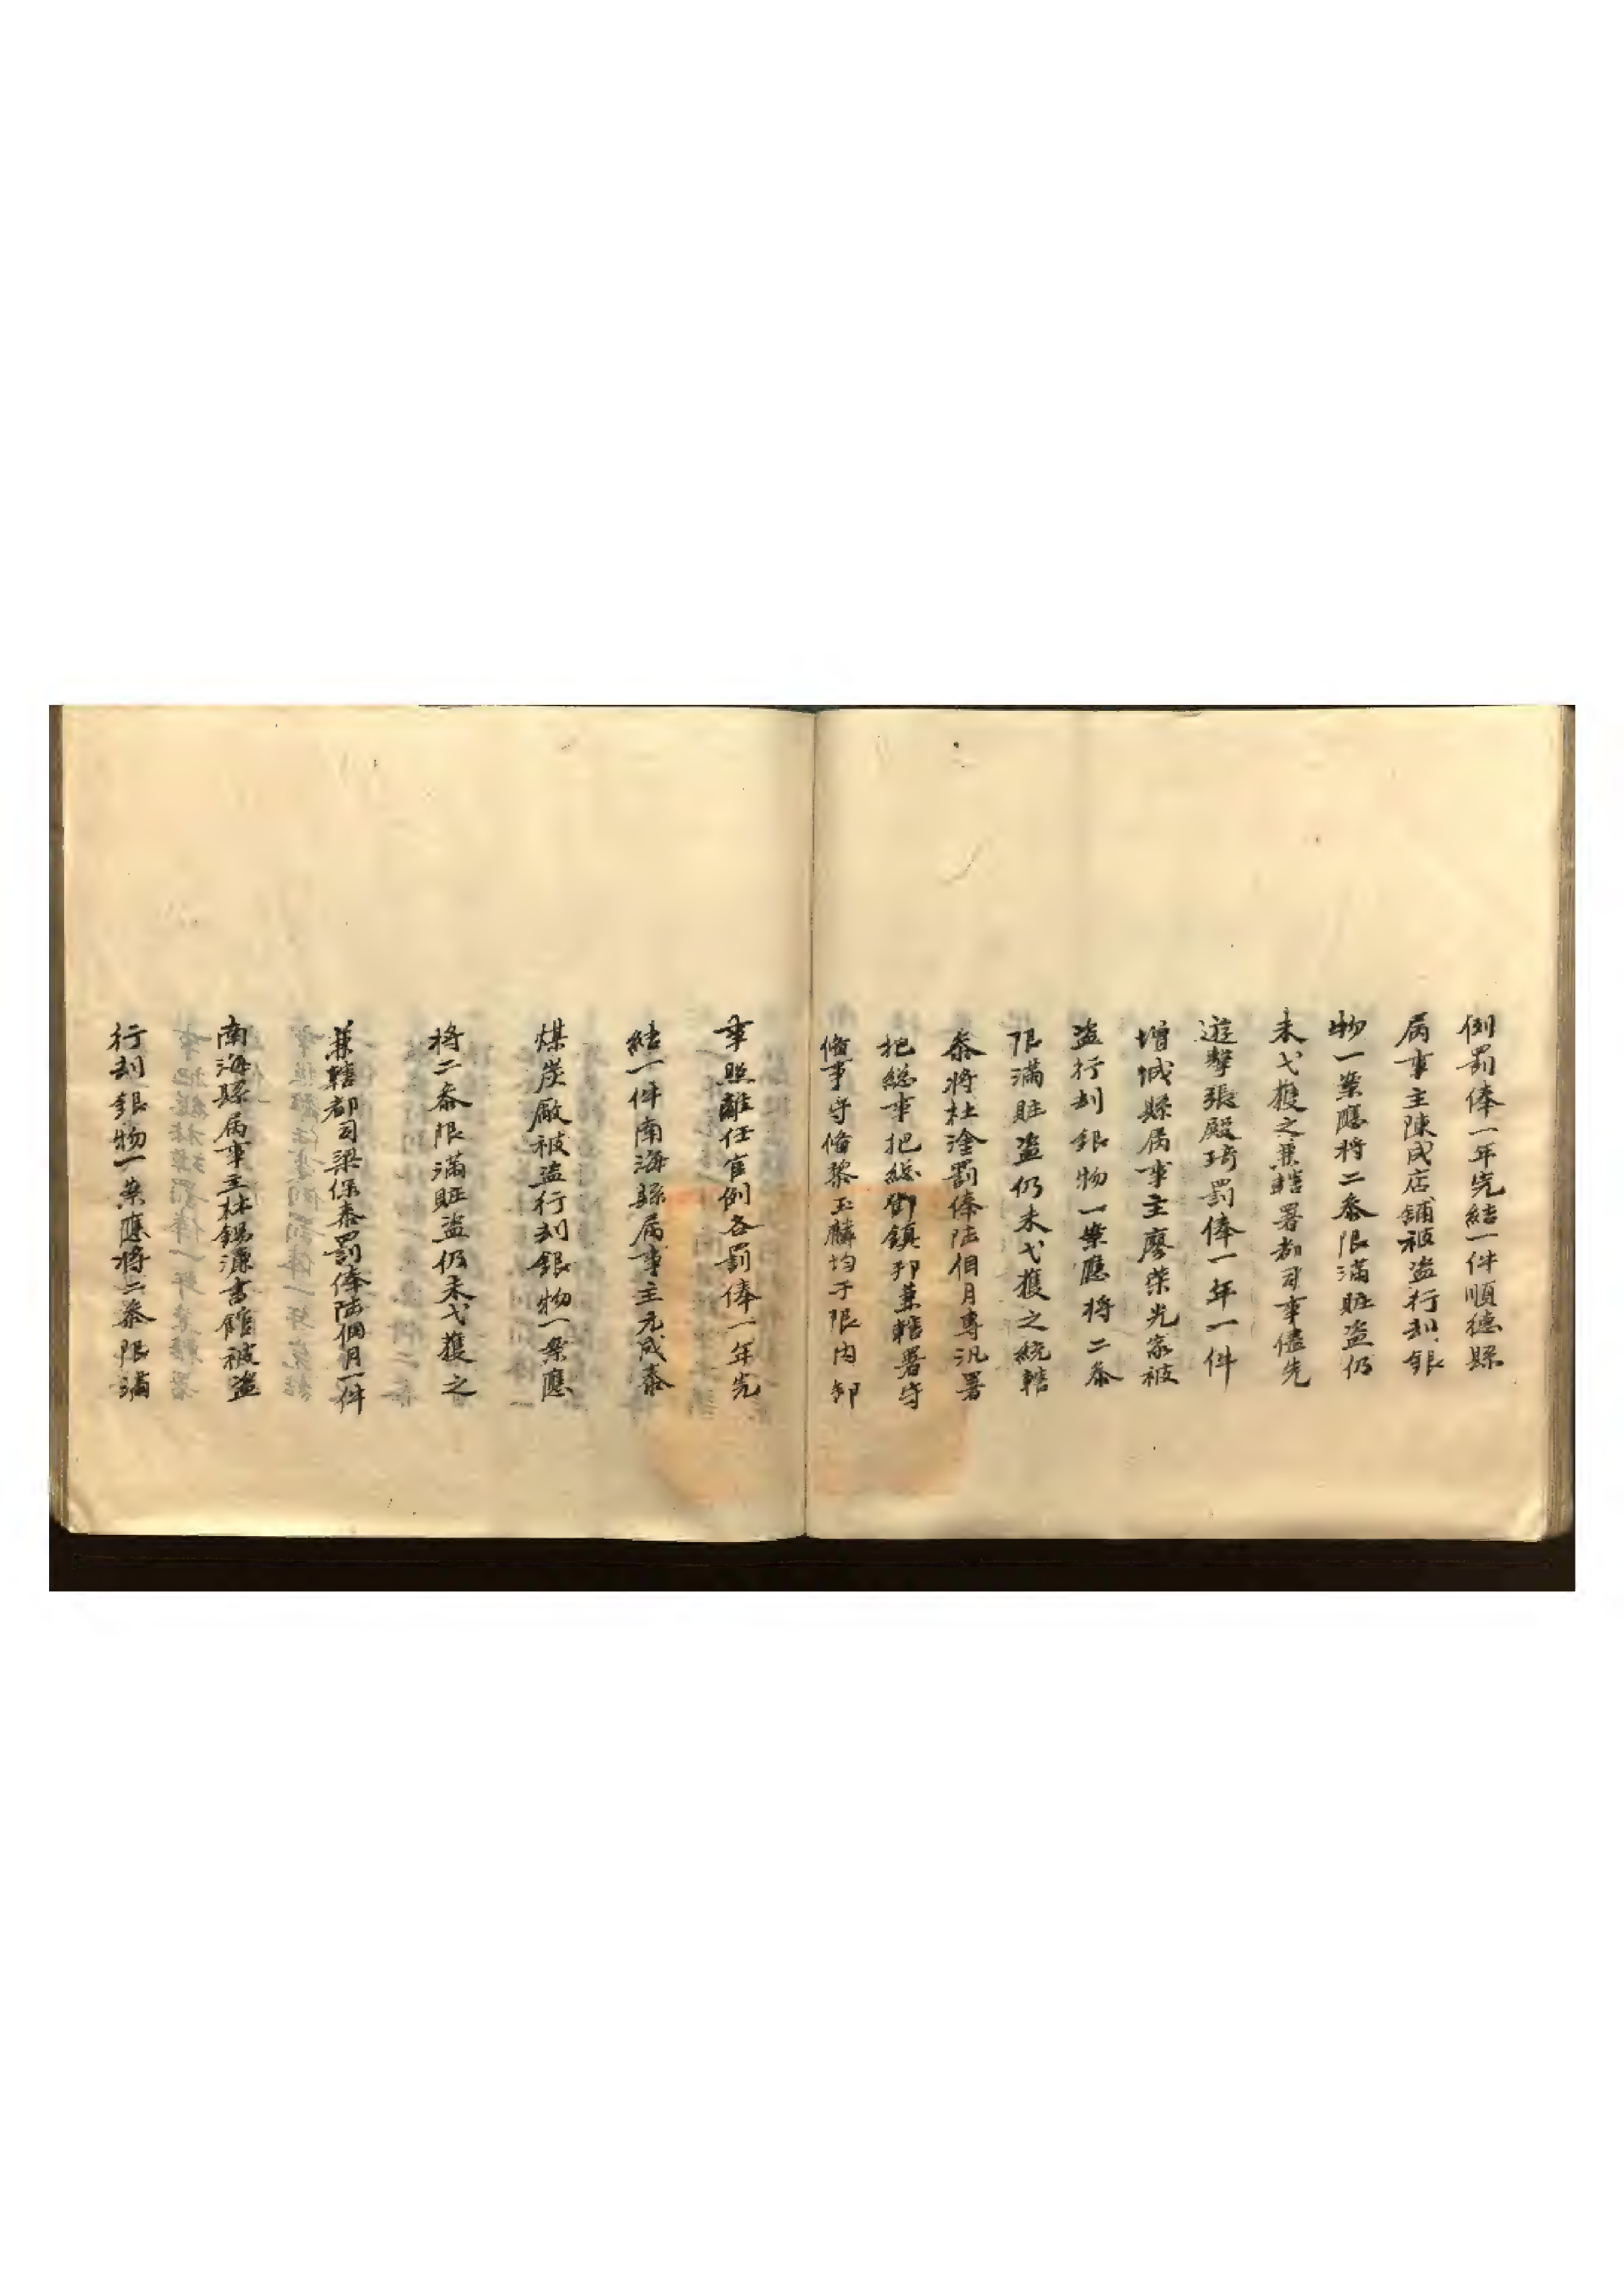 例罰俸一年完結一件順德縣
属事主陳成店鋪被盗行刦銀
物一案應將二叅限滿贓盗仍
未弋獲之兼轄署都司事儘先
遊擊張殿琦罰俸一年一件
增城縣属事主廖荣光家被
盗行刦銀物一案應將二叅
限滿贓盗仍未弋獲之統轄
叅將杜淦罰俸陸個月專汛署
把総事把総鄧鎮邦兼轄署守
俻事守俻黎玉麟均于限内卸
事照離任官例各罰俸一年完
結一件南海縣属事主元成泰
煤炭廠被盗行刦銀物一案應
將二叅限滿贓盗仍未弋獲之
兼轄都司梁保泰罰俸陸個月一件
南海縣属事主林錫濂書館被盗
行刦銀物一案應將二叅限滿